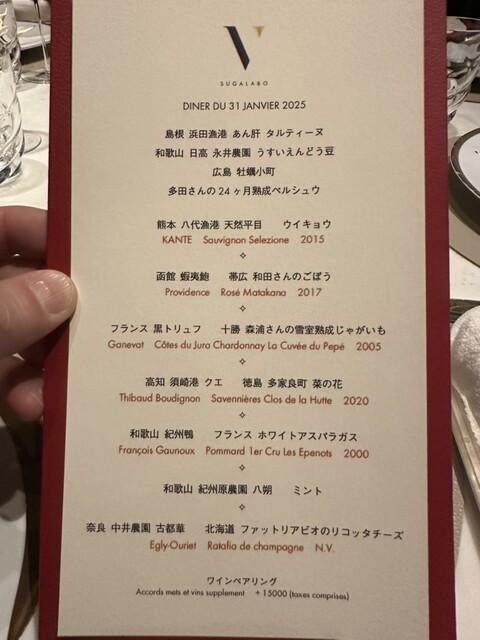 V
SUGALABO
DINER DU 31 JANVIER 2025
島根 浜田漁港 あん肝 タルティーヌ
和歌山 日高 永井農園 うすいえんどう豆
広島 牡蠣小町
多田さんの24ヶ月熟成ペルシュウ
熊本 八代漁港 天然平目 ウイキョウ
KANTE Sauvignon Selezione 2015
函館 蝦夷鮑 帯広 和田さんのごぼう
Providence Rosé Matakana 2017
フランス 黒トリュフ 十勝 森浦さんの雪室熟成じゃがいも
Ganevat Côtes du Jura Chardonnay La Cuvée du Pepé 2005
高知 須崎港 クエ 徳島 多家良町 菜の花
Thibaud Boudignon Savennières Clos de la Hutte 2020
和歌山 紀州鴨 フランス ホワイトアスパラガス
François Gaunoux Pommard 1er Cru Les Epenots 2000
和歌山 紀州原農園 八朔 ミント
奈良 中井農園 古都華 北海道 ファットリアビオのリコッタチーズ
Egly-Ouriet Ratafia de champagne N.V.
ワインペアリング
Accords mets et vins supplement +15000 (taxes comprises)